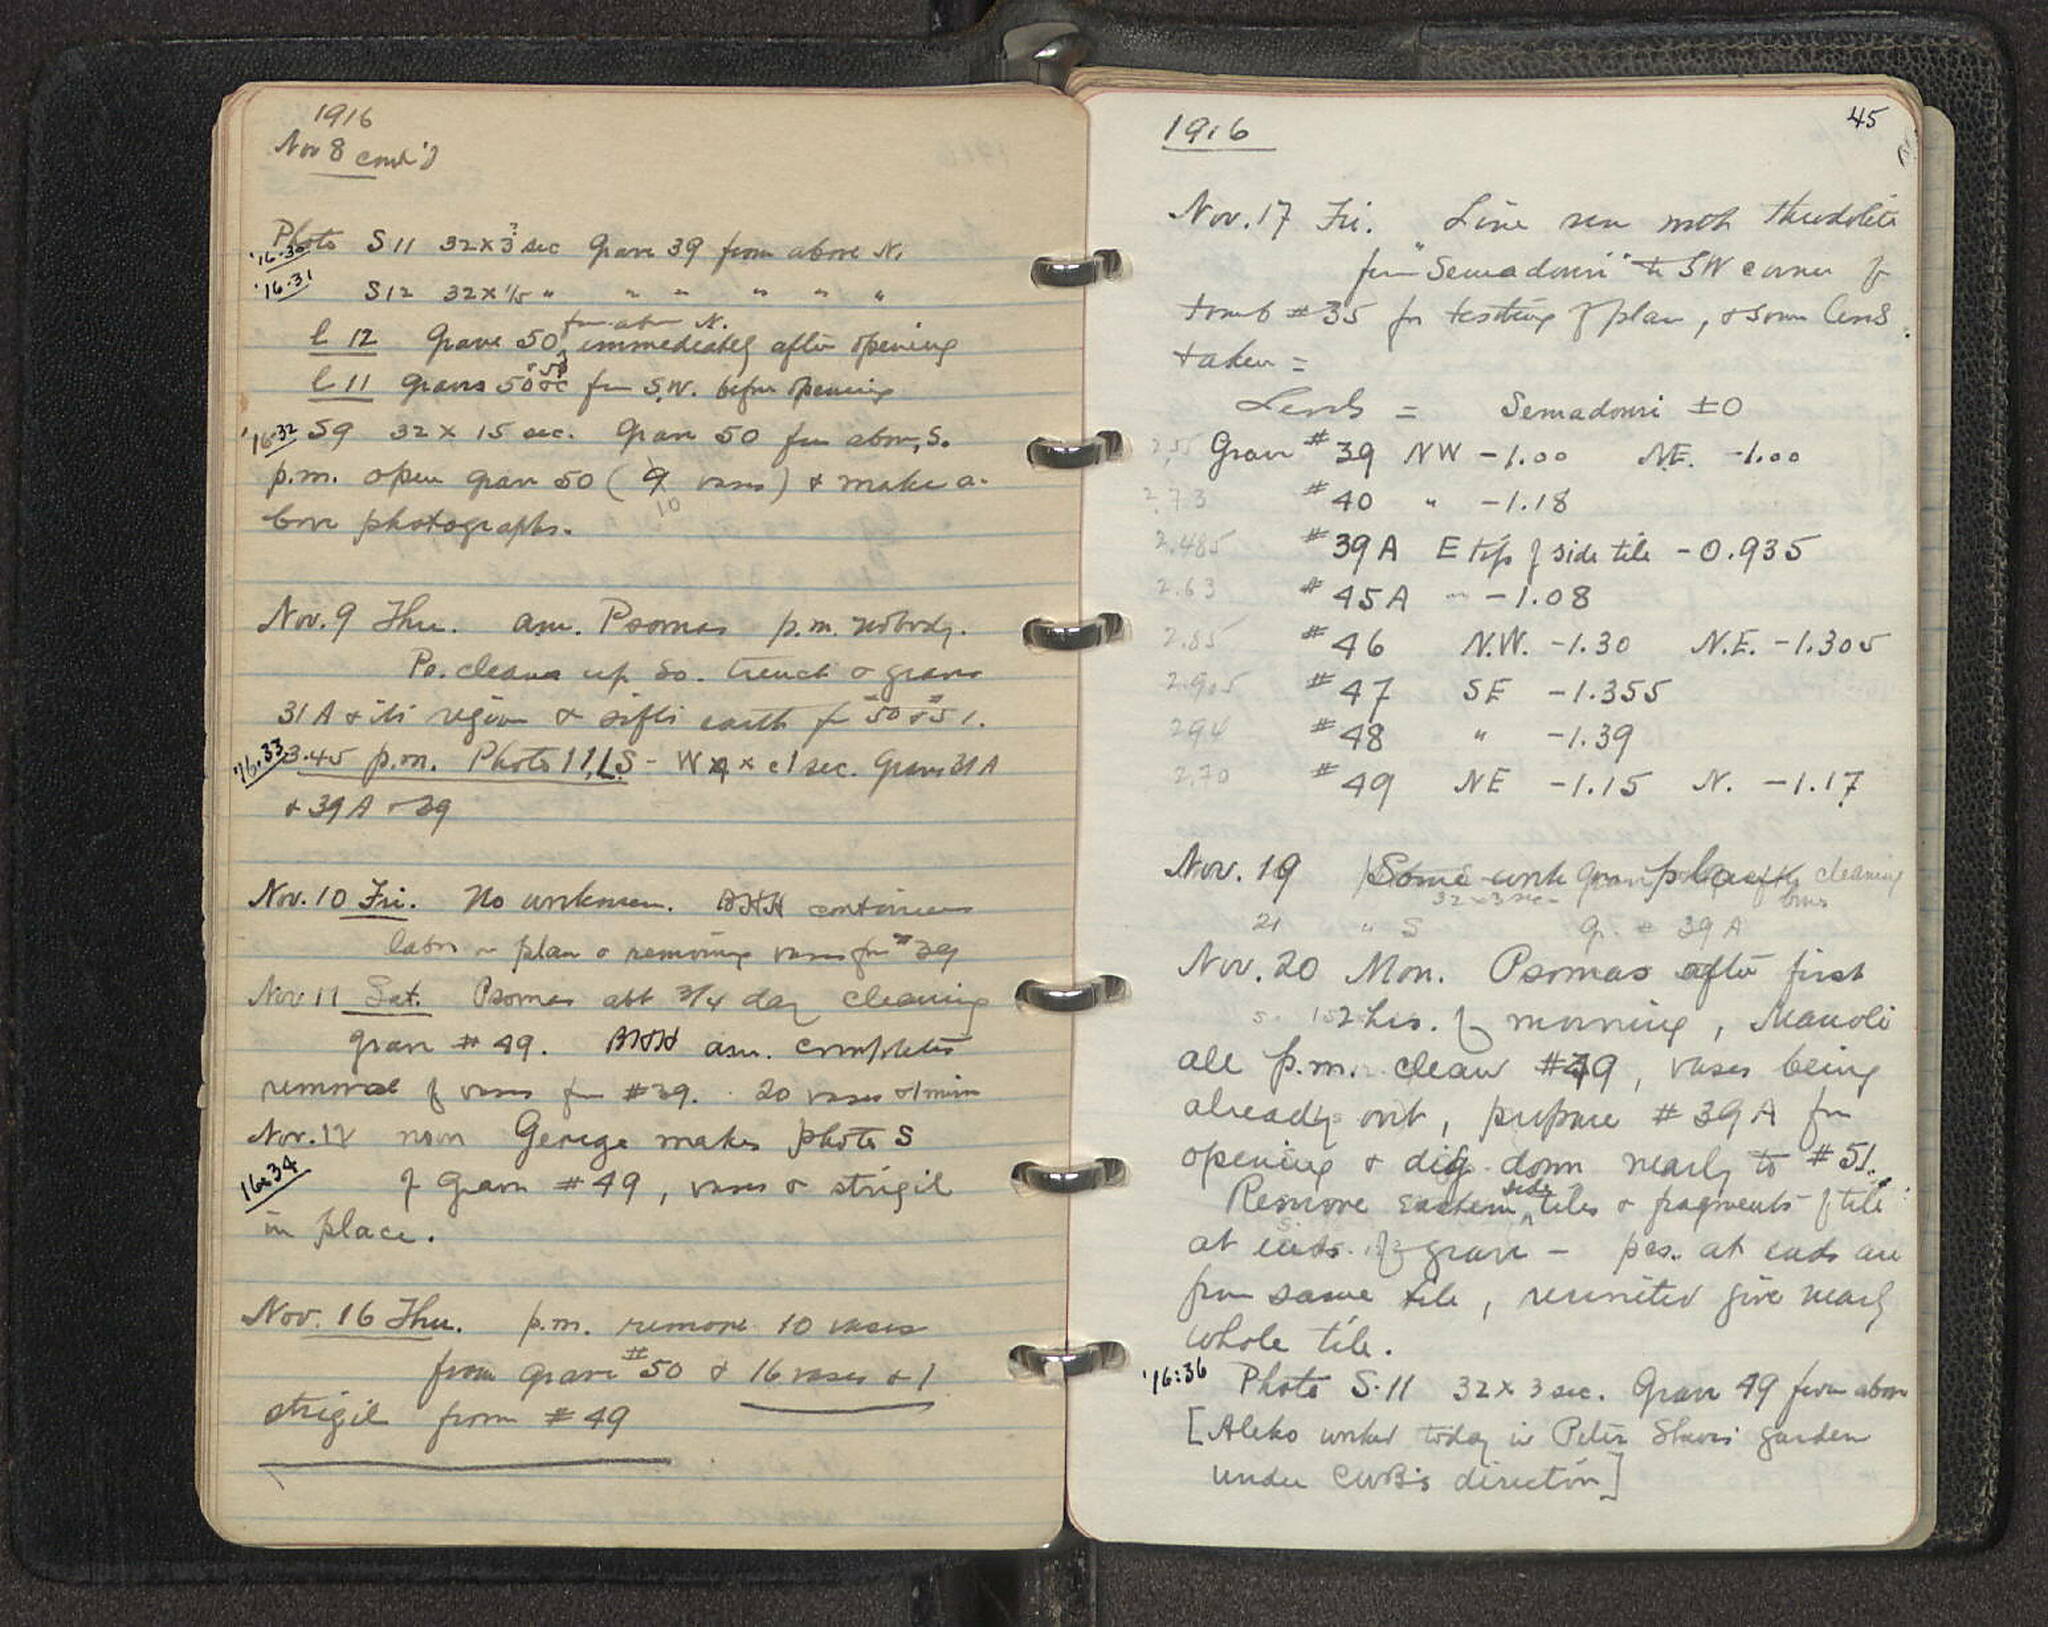 1916
Nov 8 cont'd
Photo S 11 32 x 3 sec Grave 39 from above N.
'16.30
'16.31
S12 32 x 1/5 " " " " " "
l 12 Grave 50 from above N. immediately after opening
l 11 Graves 50 & 51 fm S.W. before opening
'16.32 S9 32 x 15 sec. Grave 50 fm above, S.
p.m. open grave 50 (9 vases) & make a-
10
bove photographs.
Nov. 9 Thu. am. Psomas p.m. nobody.
Ps. cleans up So. trench & grave
31A & its region & sifts earth fm #50 & #51.
'16.33 3.45 p.m. Photo 11, LS - W 4 x c 1 sec. Graves 31 A
& 39 A & 39
Nov. 10 Fri. No workmen. BHH continues
labor on plan & removing vases fm #39
Nov 11 Sat. Psomas abt 3/4 day cleaning
grave #49. BHH am. completes
removal of vases fm #39. 20 vases & 1 min
Nov. 12 noon George makes photo S
16:34 of Grave #49, vases & strigil
in place.
Nov. 16 Thu. p.m. remove 10 vases
from grave #50 & 16 vases & 1
strigil from #49
45
1916
Nov. 17 Fri. Line run with theodolite
fm "Semadouri" to SW corner of
tomb #35 for testing of plan, & some levels
taken =
Levels = Semadouri ±0
2.55 Grave #39 NW -1.00 N.E. -1.00
2.73 #40 " -1.18
2.485 #39A E top of side tile -0.935
2.63 #45A " -1.08
2.85 #46 N.W. -1.30 N.E. -1.305
2.905 #47 SE -1.355
2.94 #48 " -1.39
2.70 #49 NE -1.15 N. -1.17
Nov. 19 Some work on plan cleaning
32 x 3 sec
21 " S Gr. # 39 A
Nov. 20 Mon. Psomas after first
2 hrs. of morning, Manoli
all p.m. clean #49, vases being
already out, prepare #39A for
opening & dig down nearly to #51.
Remove eastern side tiles & fragments of tile
at ends of grave - pcs. at ends are
from same tile, reunited give nearly
whole tile.
'16:36 Photo S.11 32 x 3 sec. Grave 49 from above
[Aleko worked today in Peter garden
under CWB's direction]